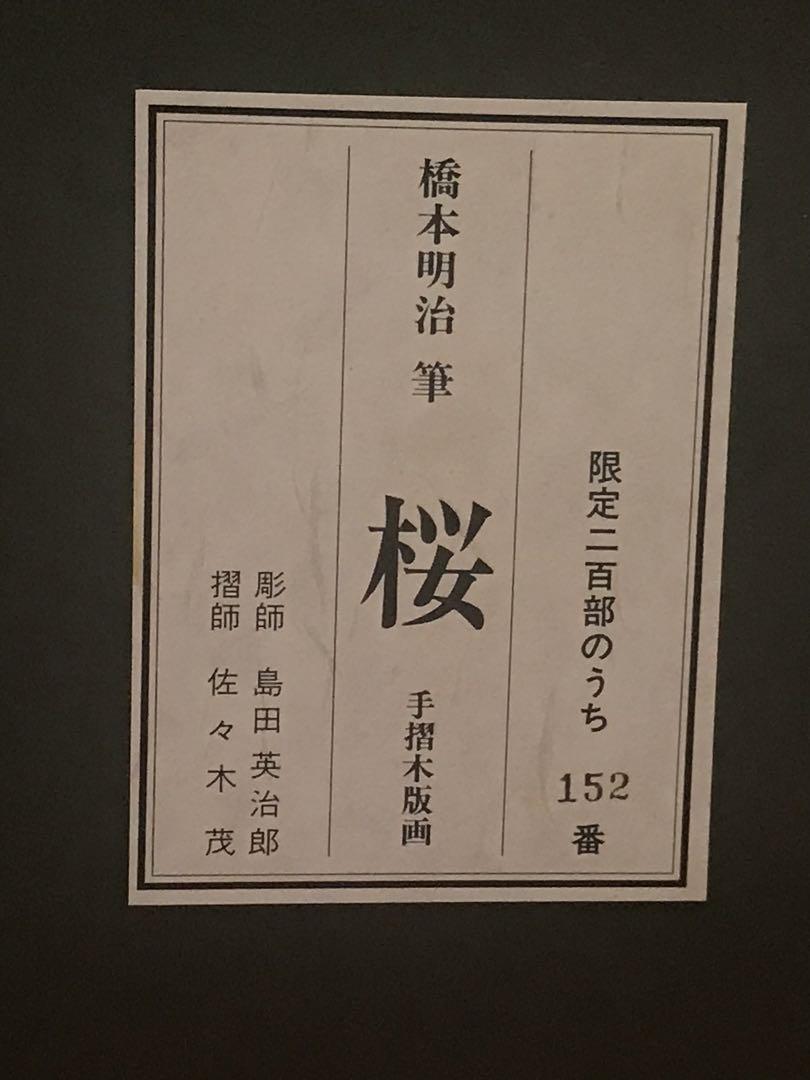 限定二百部のうち 152 番
橋本明治 筆 桜 手摺木版画
彫師 島田英治郎
摺師 佐々木 茂